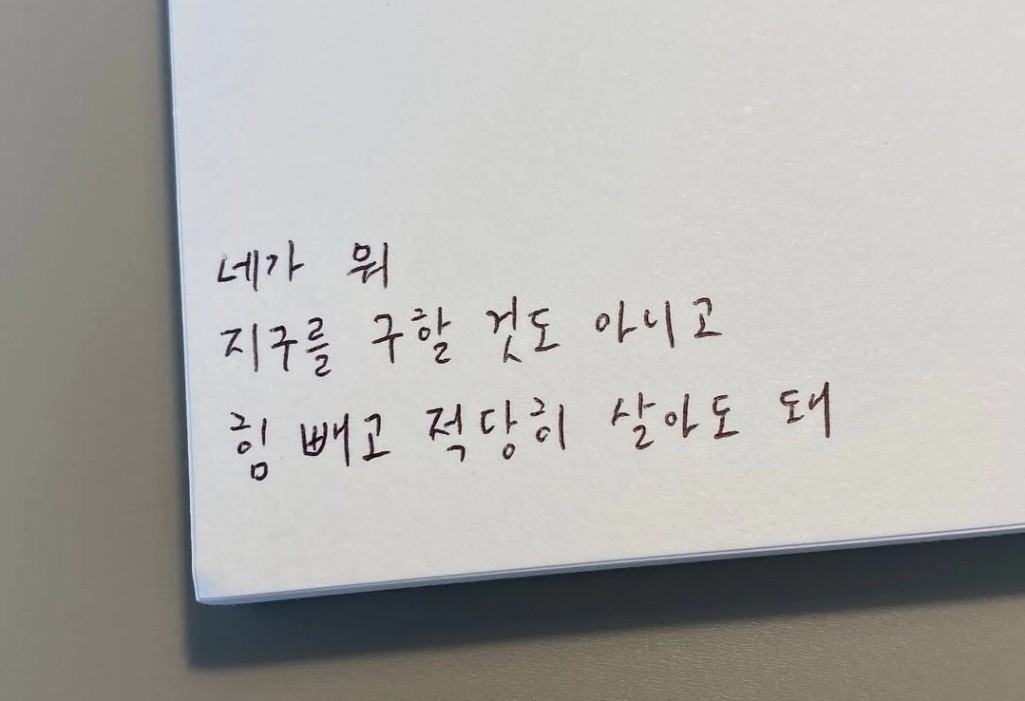 네가 뭐
지구를 구할 것도 아니고
힘 빼고 적당히 살아도 돼